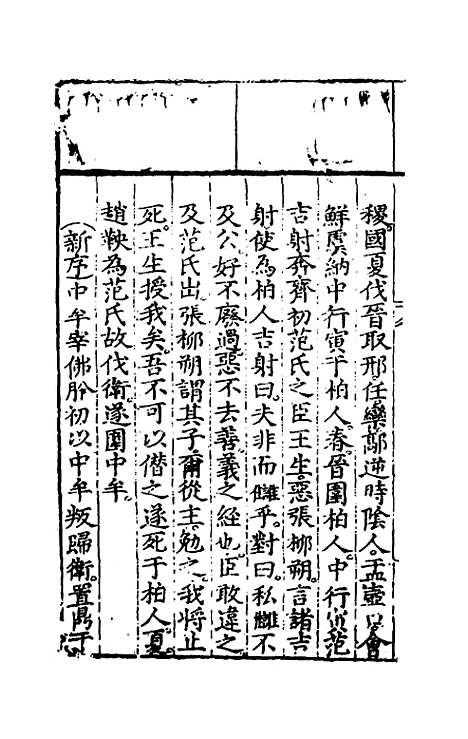 稷國夏伐晉取邢任欒鄗逆時陰人盂壺口會
鮮虞納中行寅于柏人春晉圍柏人中行寅范
吉射奔齊初范氏之臣王生惡張柳朔言諸吉
射使為柏人吉射曰夫非而讎乎對曰私讎不
及公好不廢過惡不去善義之經也臣敢違之
及范氏出張柳朔謂其子爾從主勉之我將止
死王生授我矣吾不可以僭之遂死于柏人夏
趙鞅為范氏故伐衛遂圍中牟
(新序)中牟宰佛肸初以中牟叛歸衛置鼎于